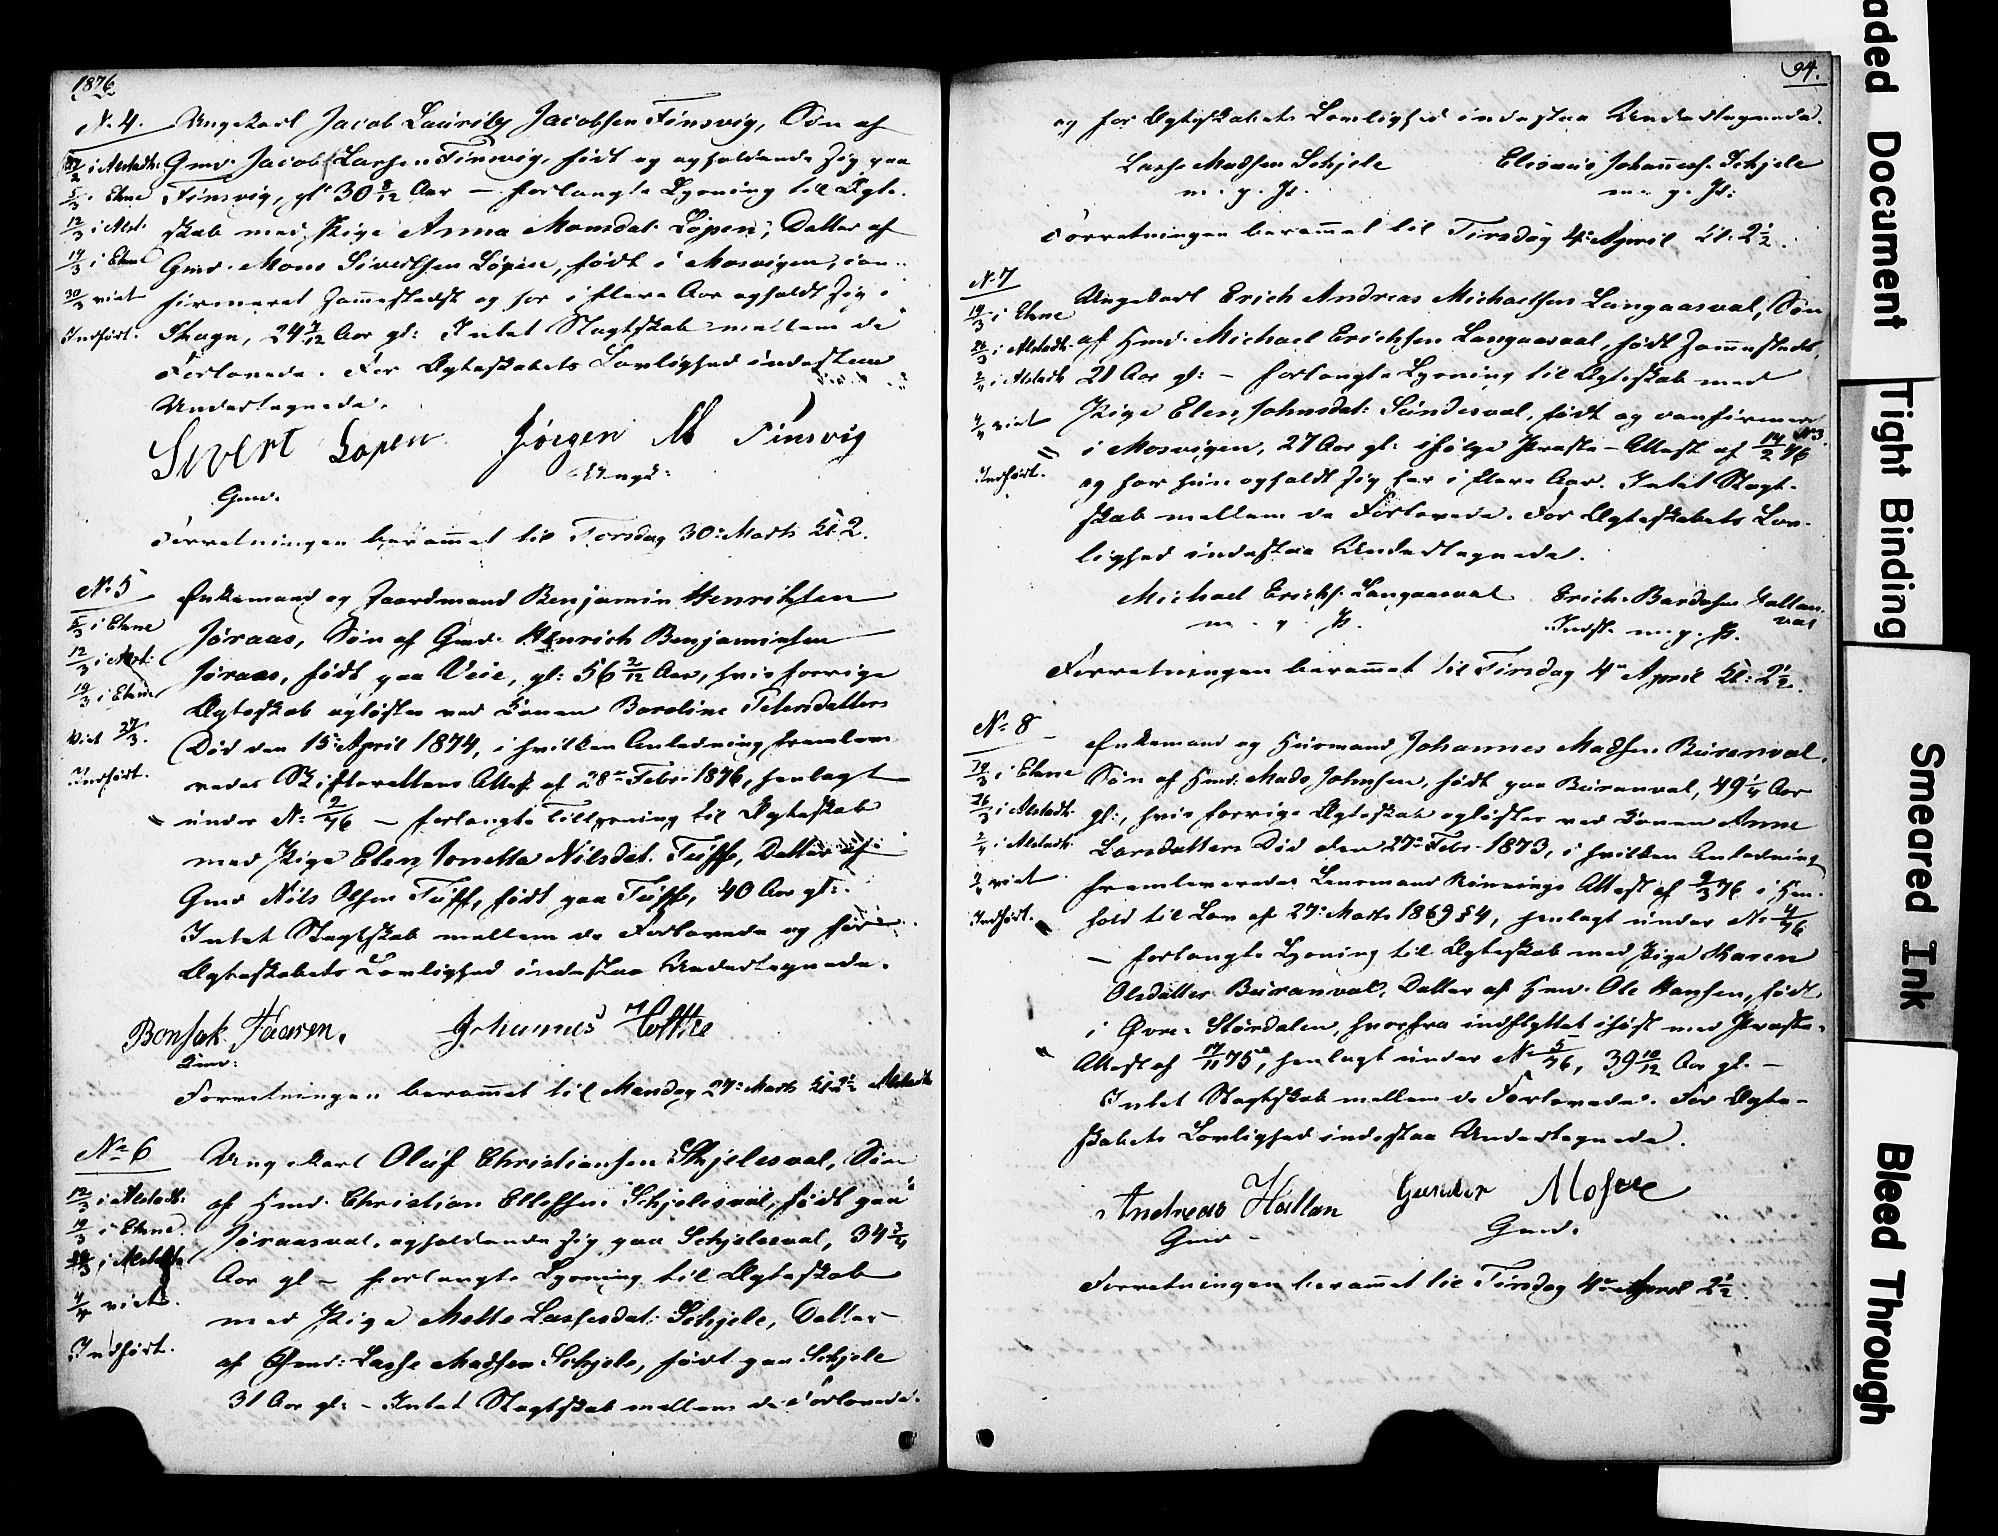 1876
N. 4. Ungekarl Jacob Lauritz Jacobsen Finsvig, Søn af
27/2 i Alstadh. Gmd. Jacob Larsen Finsvig, født og opholdende sig paa
5/3 i Ekne Finsvig, gl 30 8/12 Aar — forlangte Lysning til Ægte-
12/3 i Alst. skab med Pige Anna Monsdat. Løpen; Datter af
19/3 i Ekne Gmd. Mons Sivertsen Løpen, født i Mosvigen, con-
30/3 viet firmeret sammesteds og har i flere Aar opholdt sig i
Indført. Skogn, 24 7/12 Aar gl: Intet Slægtskab mellem de
Forlovede. For Ægteskabets Lovlighed indestaa
Undertegnede.
Sivert Lopen Jørgen Finsvig
Gmd. Ungk:
Forretningen berammet til Torsdag 30. Marts Kl 2.
N. 5 Enkemand og Gaardmand Benjamin Henriksen
5/3 i Ekne Jøraas, Søn af Gmd. Henrich Benjaminsen
12/3 i Alst. Jøraas, født paa Veie, gl: 56 2/12 Aar, hvis forrige
19/3 i Ekne Ægteskab opløstes ved Konen Baroline Petersdatters
Viet 27/3. Død den 15. April 1874, i hvilken Anledning fremlev-
Indført. eredes Skifterettens Attest af 28. Febr. 1876, henlagt
under N. 2/76 — forlangte Tillysning til Ægteskab
med Pige Elen Jonetta Nilsdat. Tuff, Datter af
Gmd Nils Olsen Tuff, født paa Tuff, 40 Aar gl:.
Intet Slægtskab mellem de Forlovede og for
Ægteskabets Lovlighed indestaa Undertegnede.
Bonsak Faaren. Johannes Holthe
Gmd:
Forretningen berammet til Mandag 27. Marts Kl 2 1/2 Alstadh
N. 6 Ungekarl Oluf Christiansen Skjelesval, Søn
12/3 i Alstadh. af Hmd. Christian Ellefsen Schjelesval, født paa
19/3 i Ekne. Jøraasval, opholdende sig paa Schjelesval, 34 3/4
26/3 i Alstadh. Aar gl — forlangte Lysning til Ægteskab
4/4 viet. med Pige Mette Lassesdat. Schjele, Datter
Indført. af Gmd: Lasse Madsen Schjele, født paa Schjele
31 Aar gl: — Intet Slægtskab mellem de Forlovede.
94.
og for Ægteskabets Lovlighed indestaa Undertegnede.
Lasse Madsen Schjele Elisæus Johanness. Schjele
m. p. P. m. p. P:
Forretningen berammet til Tirsdag 4. April Kl. 2 1/2.
N. 7
Ungekarl Erich Andreas Michaelsen Langaasval, Søn
19/3 i Ekne
26/3 i Alstadh. af Hmd. Michael Erichsen Langaasval, født sammesteds,
2/4 i Alstadh 21 Aar gl: — forlangte Lysning til Ægteskab med
4/4 viet Pige Elen Johnsdat: Sundesval, født og confirmeret
i Mosvigen, 27 Aar gl: ifølge Præste-Attest af 14/2 76 N. 3.
Indført. og har hun opholdt sig her i flere Aar. Intet Slægt-
skab mellem de Forlovede. For Ægteskabets Lov-
lighed indestaa Undertegnede.
Michael Erichs. Langaasval Erich Bardosen Hallan-
val
m. p. P. Indst. m. p. P.
Forretningen berammet til Tirsdag 4. April Kl: 2 1/2.
N. 8
Enkemand og Husmand Johannes Madsen Buranval.
19/3 i Ekne Søn af Hmd: Mads Johnsen, født paa Buranval, 49 1/4 Aar
26/3 i Alstadh. gl:, hvis forrige Ægteskab opløstes ved Konen Anne
2/4 i Alstadh. Larsdatters Død den 27. Febr. 1873, i hvilken Anledning
4/4 viet. fremleveredes Lensmand Rinnings Attest af 9/3 76 i Hen-
Indført. hold til Lov af 27. Marts 1869 § 4, henlagt under N. 4/76
— forlangte Lysning til Ægteskab med Pige Maren
Olsdatter Buranval, Datter af Hmd. Ole Hansen, født
i Øvre Størdalen, hvorfra indflyttet ihøst med Præste-
Attest af 17/11 75, henlagt under N. 5/76, 39 10/12 Aar gl. —
Intet Slægtskab mellem de Forlovede. For Ægte-
skabets Lovlighed indestaa Undertegnede.
Andreas Hallan Gunder Mossve
Gmd Gmd.
Forretningen berammet til Tirsdag 4. April 2 1/2.
aded Document
Tight Binding
Smeared Ink
Bleed Through